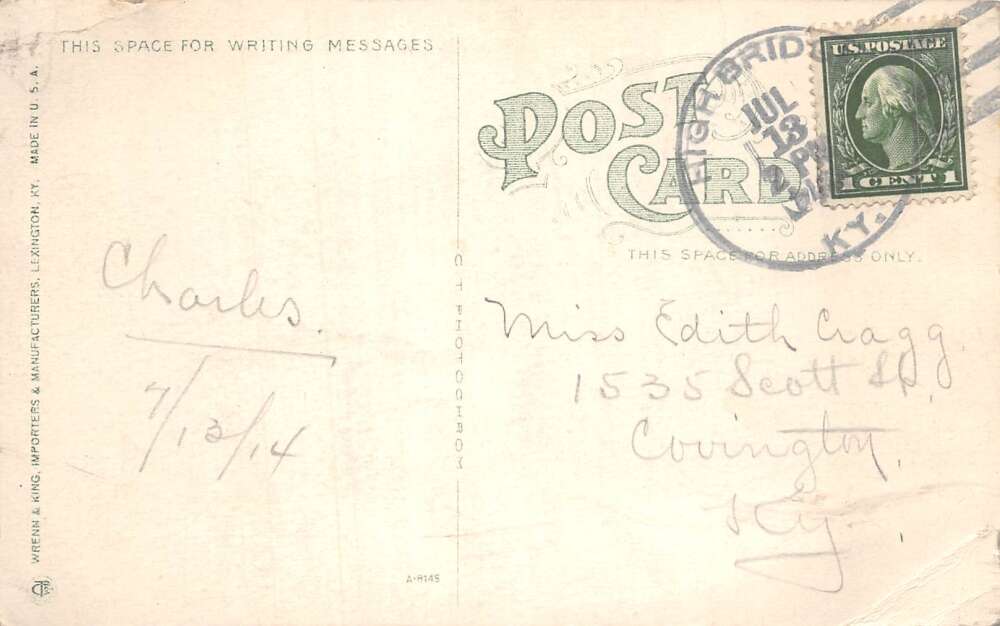 THIS SPACE FOR WRITING MESSAGES
POST
CARD
THIS SPACE FOR ADDRESS ONLY.
HIGH BRIDGE
JUL
13
KY.
U.S. POSTAGE
1 CENT 1
Charles.
7/13/14
Miss Edith Cragg.
1535 Scott St,
Covington,
Ky.
WRENN & KING, IMPORTERS & MANUFACTURERS, LEXINGTON, KY. MADE IN U. S. A.
C T PHOTOCHROM
A-8145